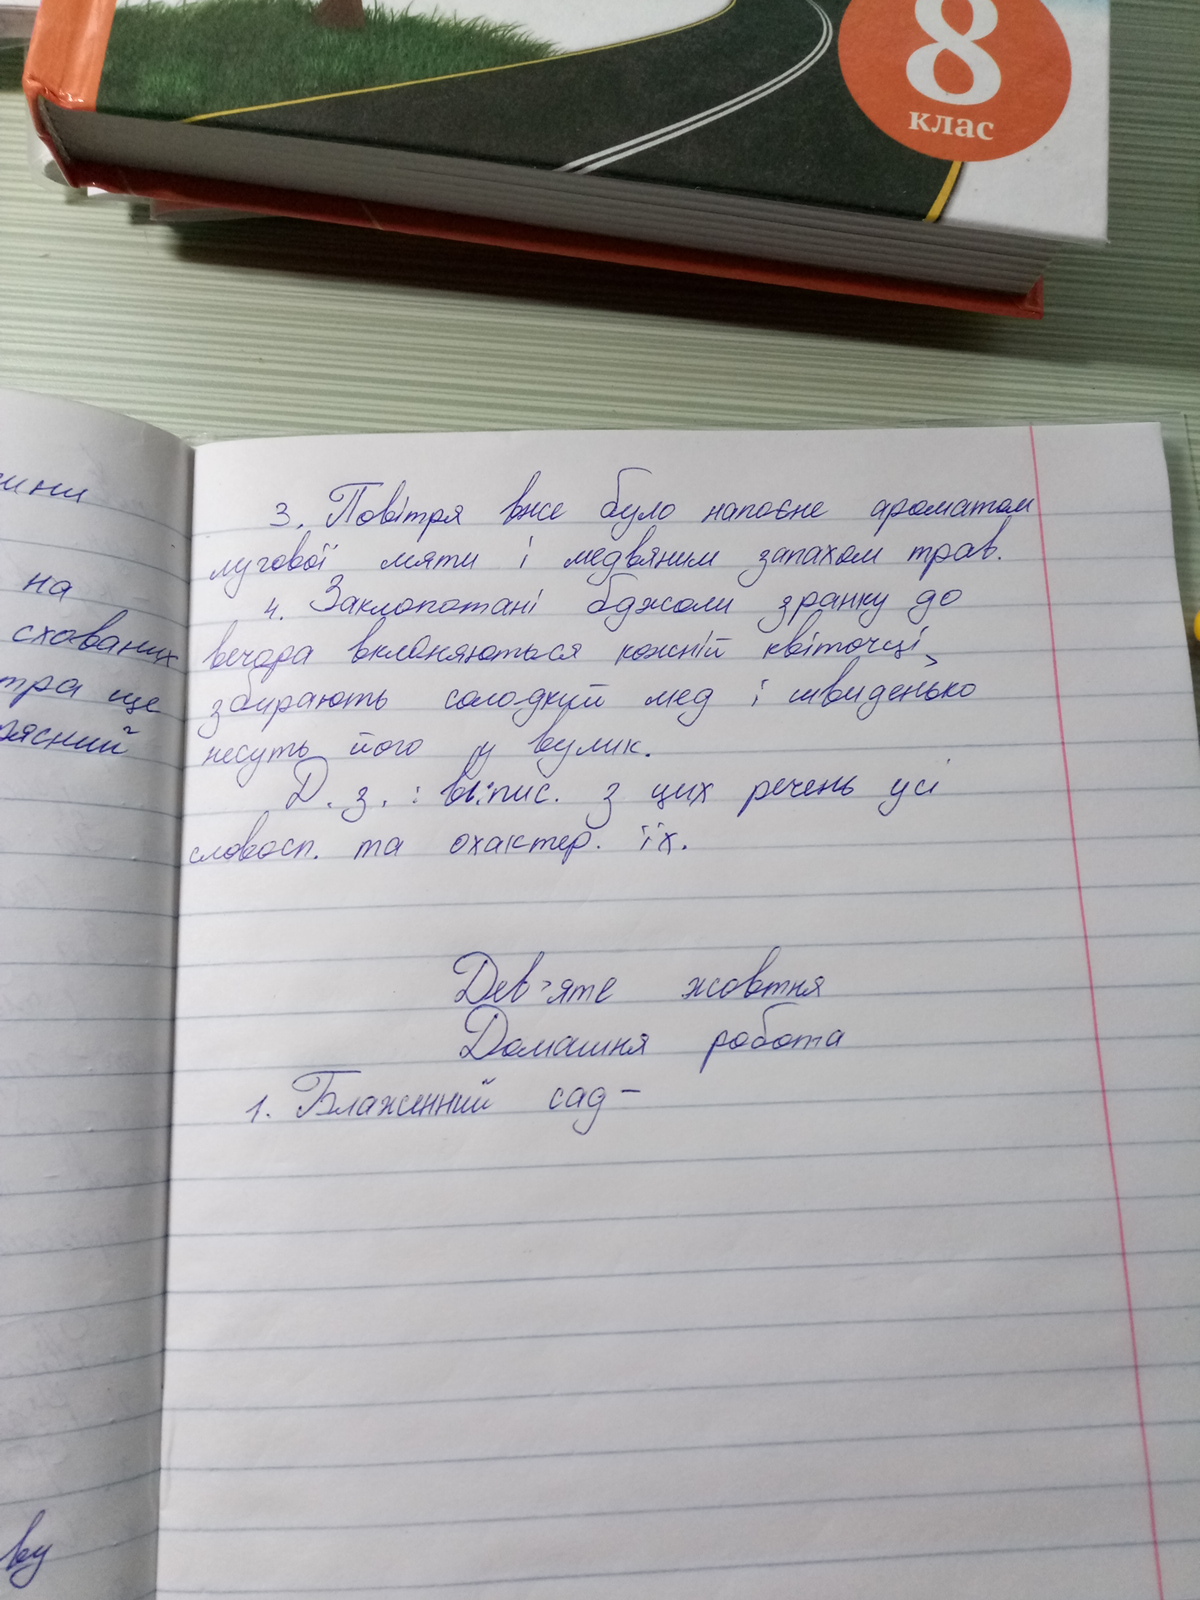 8
клас
3. Повітря вже було напоєне ароматом
лугової мяти і медвяним запахом трав.
4. Заклопотані бджоли зранку до
вечора вклоняються кожній квіточці,
збирають солодкий мед і швиденько
несуть його у вулик.
Д. з. : випис. з цих речень усі
словосп. та охактер. їх.
Дев'яте жовтня
Домашня робота
1. Блаженний сад –
на
схованих
ще
ву